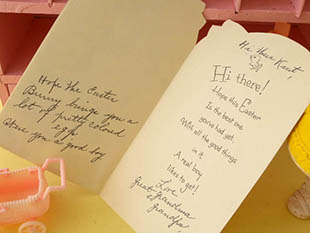 Hope the Easter
Bunny brings you a
lot of pretty colored
eggs
you a good boy
Hi there!
Hope this Easter
Is the best one
you've had yet,
With all the good things
in it
A real boy
likes to get!
Love
Great Grandma
Grandpa